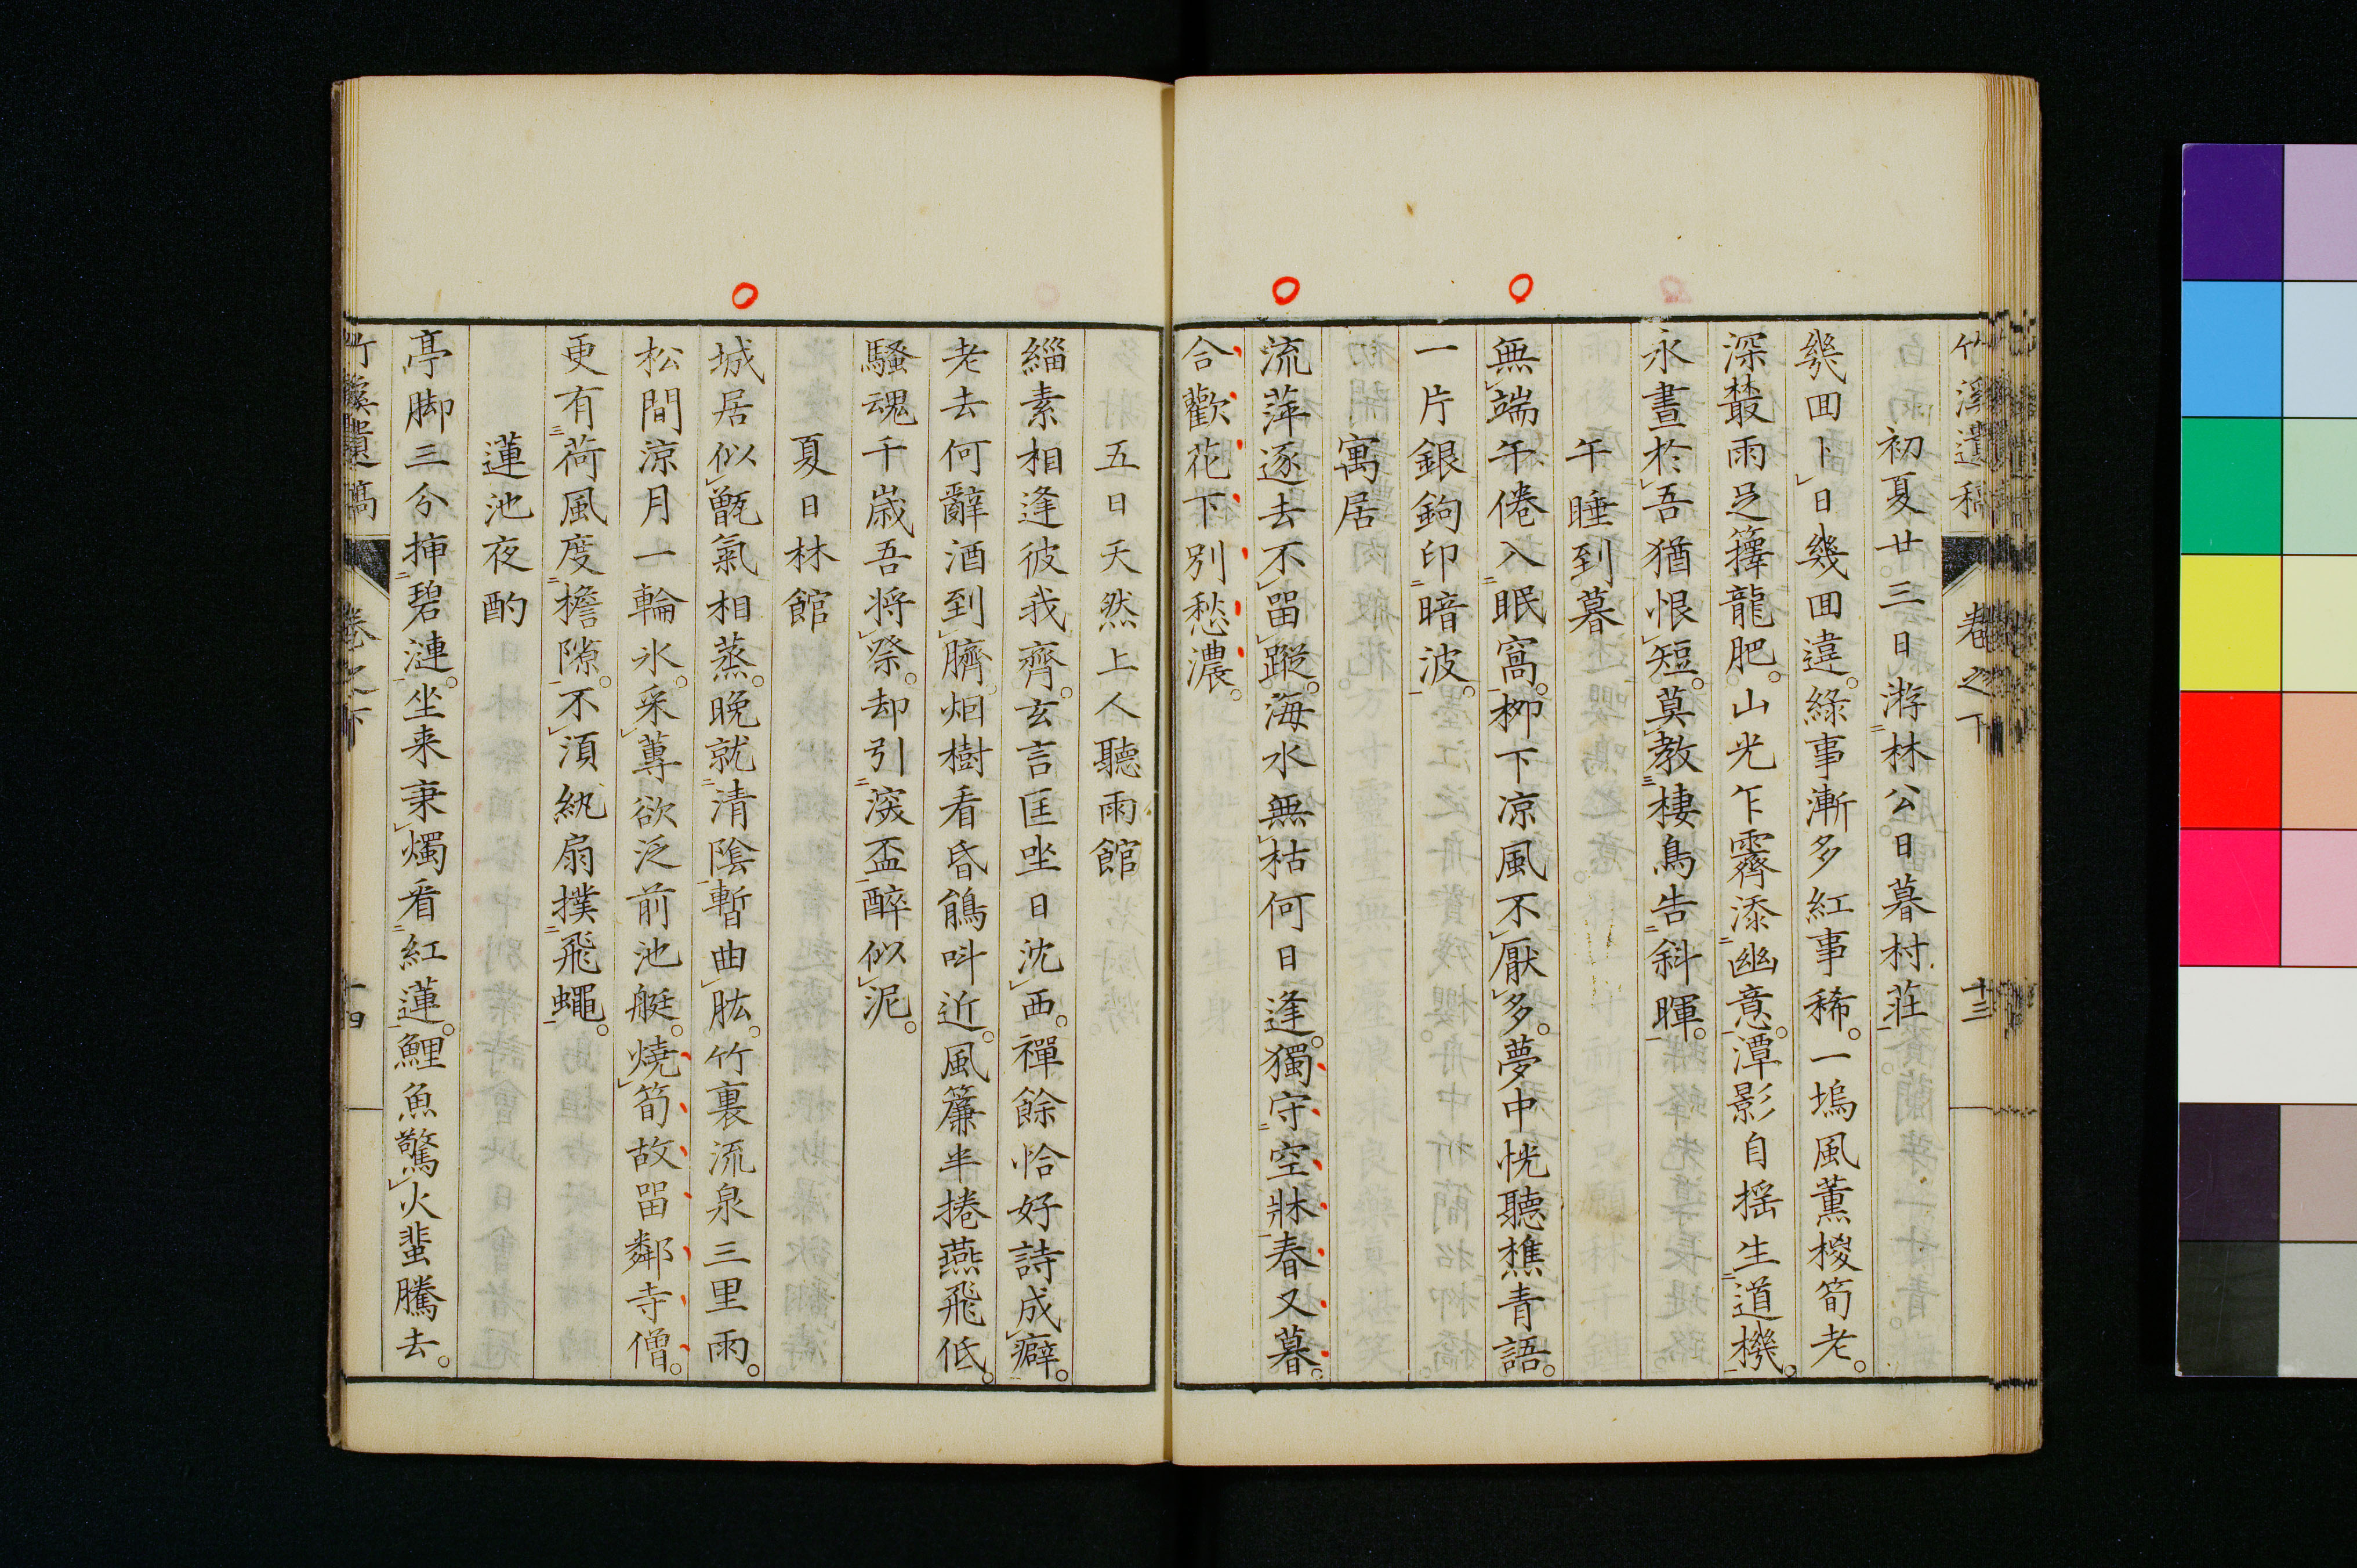 竹溪遺稿 卷之下 十三
初夏廿三日游林公日暮村莊
幾回卜日幾回違。綠事漸多紅事稀。一塢風薰椶筍老。
深叢雨足籜龍肥。山光乍霽添幽意。潭影自搖生道機。
永晝於吾猶恨短。莫教棲鳥告斜暉。
午睡到暮
無端午倦入眠窩。柳下凉風不厭多。夢中恍聽樵青語。
一片銀鉤印暗波。
寓居
流萍逐去不畱蹤。海水無枯何日逢。獨守空牀春又暮。
合歡花下別愁濃。
五日天然上人聽雨館
緇素相逢彼我齊。玄言匡坐日沈西。禪餘恰好詩成癖。
老去何辭酒到臍。烟樹看昏鵃呌近。風簾半捲燕飛低。
騷魂千歲吾將祭。却引深盃醉似泥。
夏日林館
城居似甑氣相蒸。晚就清陰暫曲肱。竹裏流泉三里雨。
松間涼月一輪氷。采蓴欲泛前池艇。燒筍故畱鄰寺僧。
更有荷風度檐隙。不須紈扇撲飛蠅。
蓮池夜酌
亭脚三分揷碧漣。坐来秉燭看紅蓮。鯉魚驚火蜚騰去。
竹溪遺稿 卷之下 十四